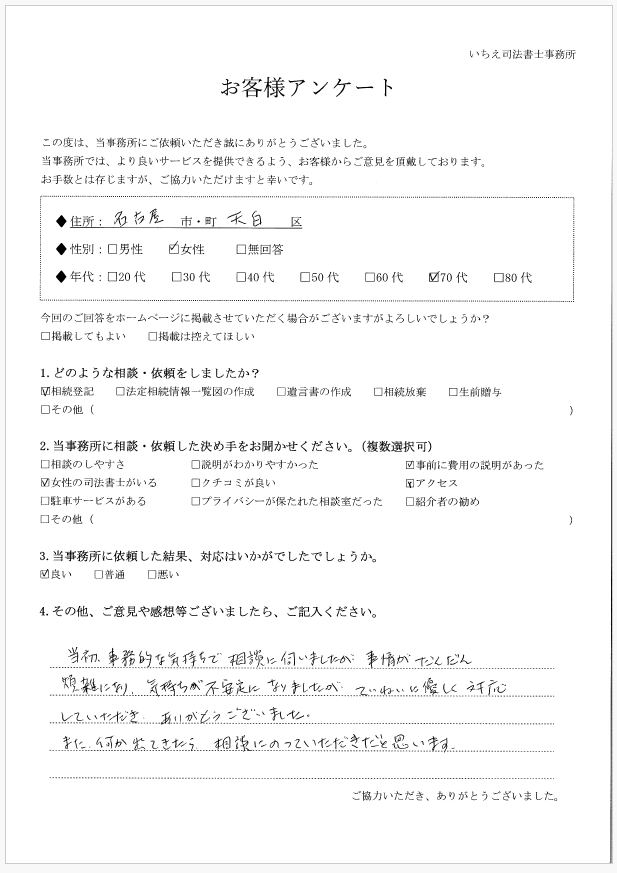 いちえ司法書士事務所
お客様アンケート
この度は、当事務所にご依頼いただき誠にありがとうございました。
当事務所では、より良いサービスを提供できるよう、お客様からご意見を頂戴しております。
お手数とは存じますが、ご協力いただけますと幸いです。
◆住所: 名古屋 市・町 天白 区
◆性別:□男性 ☑女性 □無回答
◆年代:□20代 □30代 □40代 □50代 □60代 ☑70代 □80代
今回のご回答をホームページに掲載させていただく場合がございますがよろしいでしょうか?
□掲載してもよい □掲載は控えてほしい
1.どのような相談・依頼をしましたか?
☑相続登記 □法定相続情報一覧図の作成 □遺言書の作成 □相続放棄 □生前贈与
□その他( )
2.当事務所に相談・依頼した決め手をお聞かせください。(複数選択可)
□相談のしやすさ □説明がわかりやすかった ☑事前に費用の説明があった
☑女性の司法書士がいる □クチコミが良い ☑アクセス
□駐車サービスがある □プライバシーが保たれた相談室だった □紹介者の勧め
□その他( )
3.当事務所に依頼した結果、対応はいかがでしたでしょうか。
☑良い □普通 □悪い
4.その他、ご意見や感想等ございましたら、ご記入ください。
当初、事務的な気持ちで相談に伺いましたが、事情がだんだん
煩雑になり、気持ちが不安定になりましたが、ていねいに優しく対応
していただき、ありがとうございました。
また、何か出てきたら、相談にのっていただきたいと思います。
ご協力いただき、ありがとうございました。